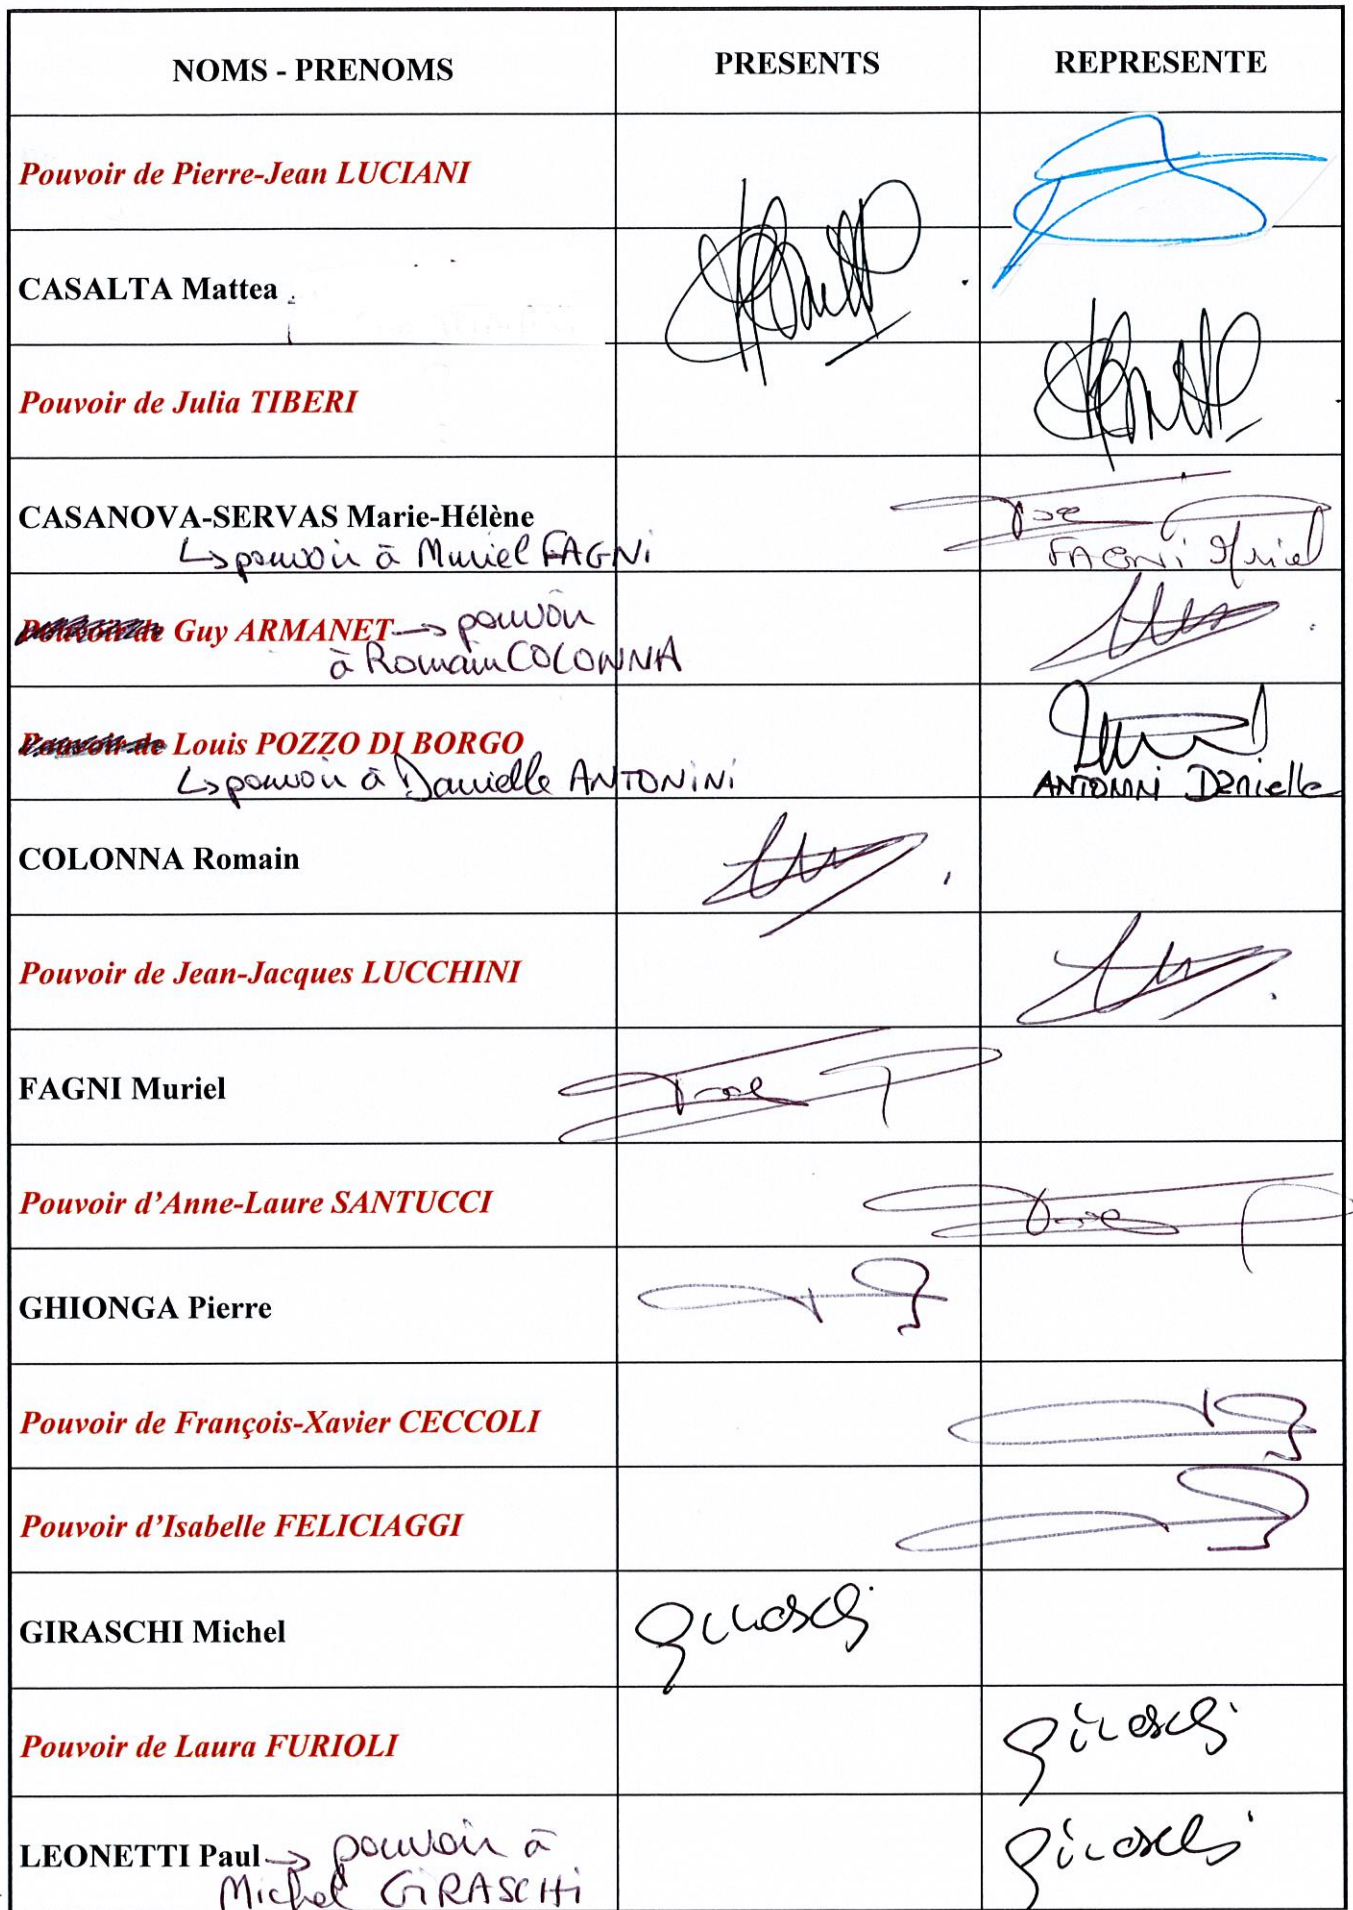 NOMS - PRENOMS PRESENTS REPRESENTE
Pouvoir de Pierre-Jean LUCIANI
CASALTA Mattea
Pouvoir de Julia TIBERI
CASANOVA-SERVAS Marie-Hélène
↳ pouvoir à Muriel FAGNi FAGNi Muriel
Pouvoir de Guy ARMANET → pouvoir
à Romain COLONNA
Pouvoir de Louis POZZO DI BORGO
↳ pouvoir à Danielle ANTONiNi ANTONINI Danielle
COLONNA Romain
Pouvoir de Jean-Jacques LUCCHINI
FAGNI Muriel
Pouvoir d’Anne-Laure SANTUCCI
GHIONGA Pierre
Pouvoir de François-Xavier CECCOLI
Pouvoir d’Isabelle FELICIAGGI
GIRASCHI Michel Giraschi
Pouvoir de Laura FURIOLI Giraschi
LEONETTI Paul → pouvoir à Giraschi
Michel GiRASCHi